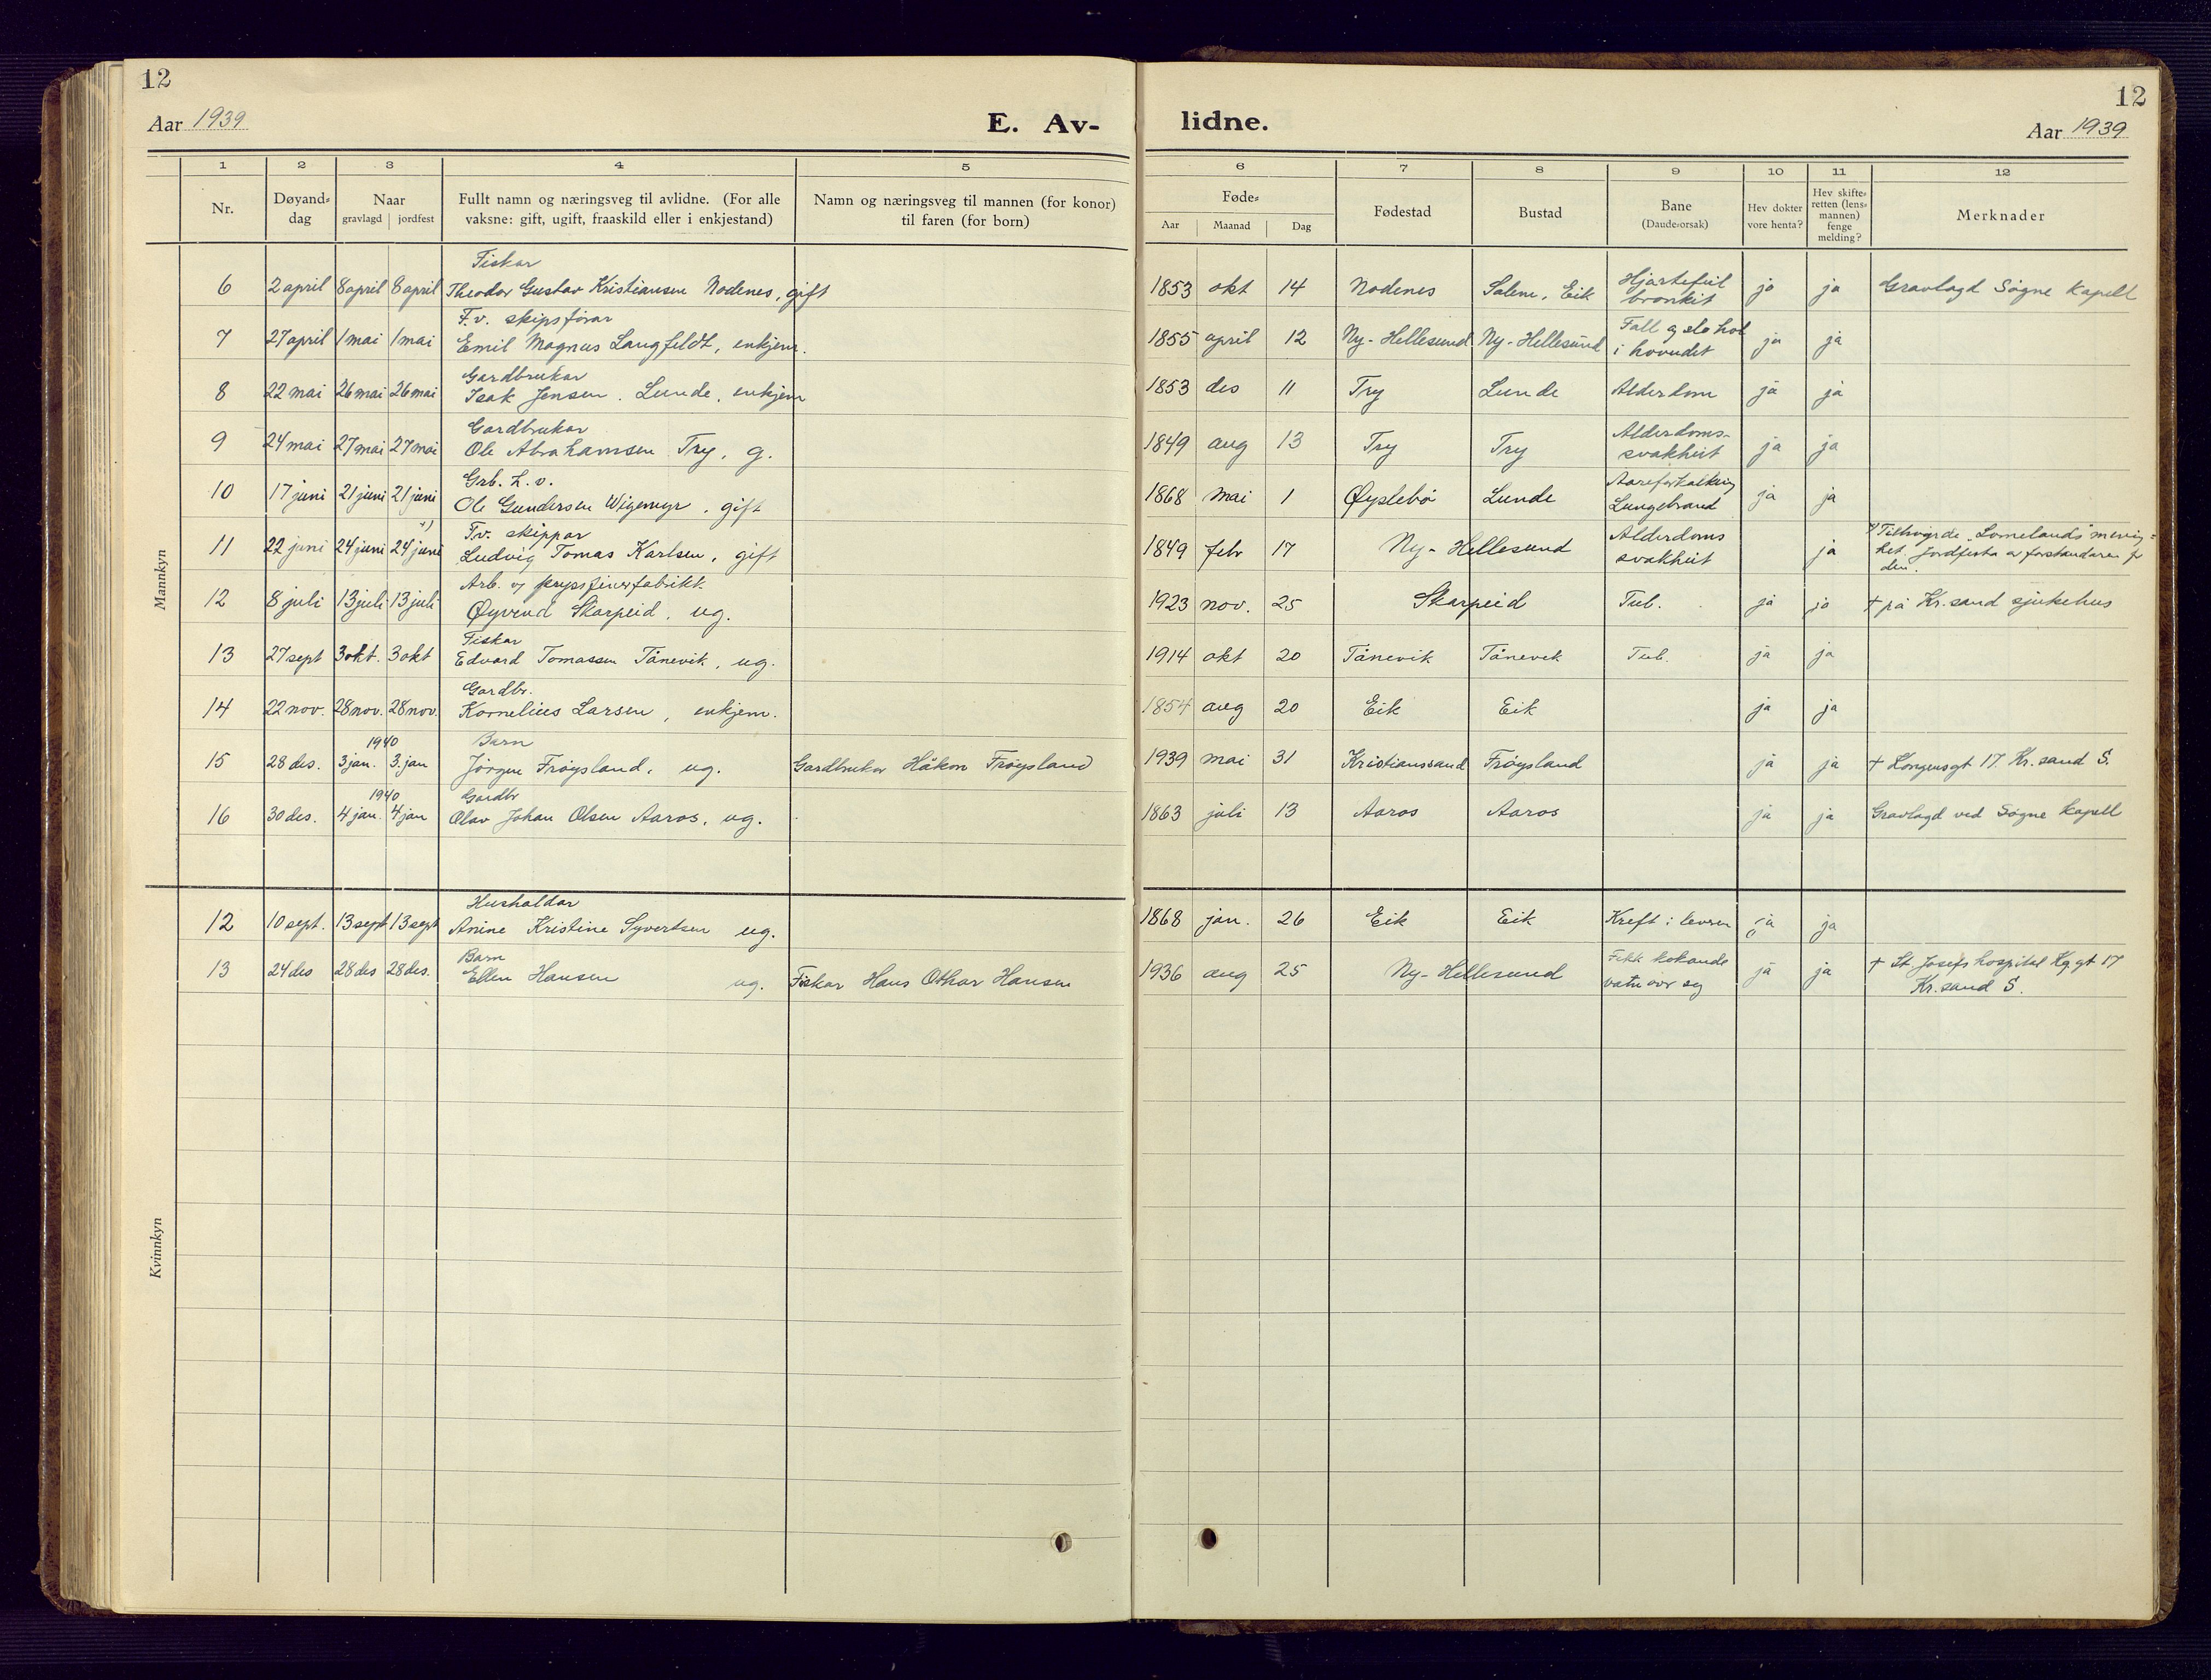 12
12
Aar 1939
E. Av-
lidne.
Aar 1939
1 2 3 4 5
6 7 8 9 10 11 12
Nr.
Døyand-
dag
Naar
gravlagd jordfest
Fullt namn og næringsveg til avlidne. (For alle
vaksne: gift, ugift, fraaskild eller i enkjestand)
Namn og næringsveg til mannen (for konor)
til faren (for born)
Føde-
Aar Maanad Dag
Fødestad
Bustad
Bane
(Daude-orsak)
Hev dokter
vore henta?
Hev skifte-
retten (lens-
mannen)
fenge
melding?
Merknader
Mannkyn
Fiskar Hjartefeil
6 2 april 8 april 8 april Theodor Gustav Kristiansen Nodenes, gift 1853 okt 14 Nodenes Salem, Eik bronkit jo ja Gravlagd Søgne Kapell
F.v. skipsførar Fall og slo hol
7 27 april 1 mai 1 mai Emil Magnus Langfeldt, enkjem. 1855 april 12 Ny-Hellesund Ny-Hellesund i hovudet ja ja
Gardbrukar
8 22 mai 26 mai 26 mai Isak Jensen Lunde, enkjem 1853 des 11 Try Lunde Alderdom ja ja
Gardbrukar Alderdoms-
9 24 mai 27 mai 27 mai Ole Abrahamsen Try, g. 1849 aug 13 Try Try svakheit ja ja
Grb. Aareforkalking
10 17 juni 21 juni 21 juni Ole Gundersen Wigemyr, gift 1868 mai 1 Øyslebø Lunde Lungebrand ja ja
F.v. skippar Alderdoms x) Tilhøyrde "Lomelands" menig-
11 22 juni 24 juni 24 juni x) Ludvig Tomas Karlsen, gift 1849 febr 17 Ny-Hellesund svakheit ja het. Jordfesta av forstandaren for
den.
Arb. finerfabrikk
12 8 juli 13 juli 13 juli Øyvind Skarpeid, ug. 1923 nov. 25 Skarpeid Tub. ja jo † på Kr.sand sjukehus
Fiskar
13 27 sept 3 okt. 3 okt Edvard Tomassen Tånevik, ug. 1914 okt 20 Tånevik Tånevik Tub. ja ja
Gardbr.
14 22 nov. 28 nov. 28 nov. Kornelius Larsen, enkjem. 1854 aug 20 Eik Eik ja ja
1940 Barn
15 28 des. 3 jan. 3. jan Jörgen Frøysland, ug. Gardbrukar Håkon Frøysland 1939 mai 31 Kristianssand Frøysland ja ja † Kongensgt 17. Kr.sand S.
1940 Gardbr
16 30 des. 4 jan. 4 jan Olav Johan Olsen Aaros, ug. 1863 juli 13 Aaros Aaros ja ja Gravlagd ved Søgne kapell
Kvinnkyn
Hushaldar
12 10 sept. 13 sept 13 sept Anine Kristine Syvertsen ug. 1868 jan. 26 Eik Eik Kreft i levren ja ja
Barn Fekk kokande
13 24 des 28 des 28 des. Ellen Hansen ug. Fiskar Hans Othar Hansen 1936 aug 25 Ny-Hellesund vatn over seg ja ja † St. Josefs hospital Kg.gt 17
Kr.sand S.